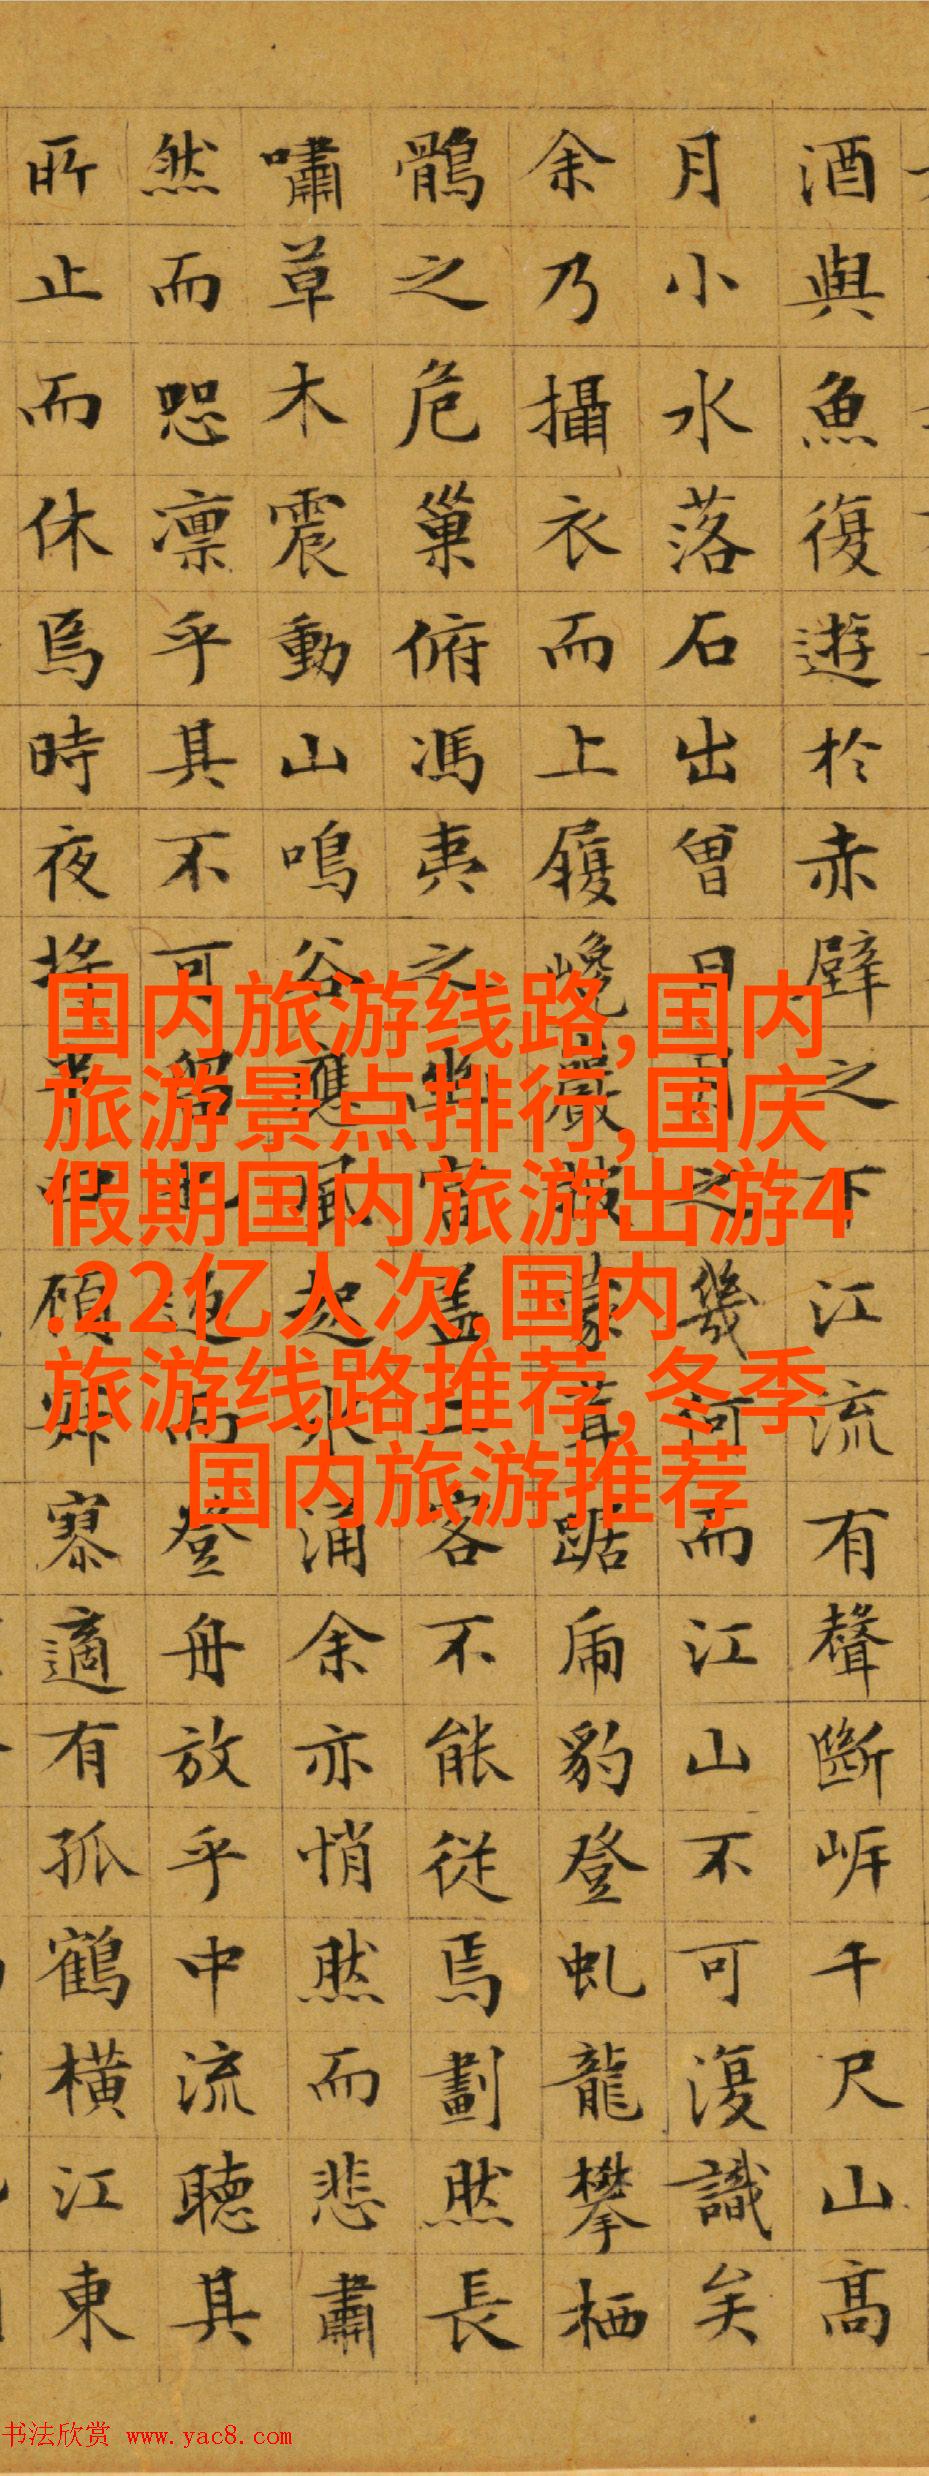 酒與魚復遊於赤壁之下江流有聲斷岸千尺山高
月小水落石出曾日月之幾何而江山不可復識矣
余乃攝衣而上履巉巖披蒙茸踞虎豹登虬龍攀栖
鶻之危巢俯馮夷之幽宮蓋二客不能從焉劃然長
嘯草木震動山鳴谷應風起水涌余亦悄然而悲肅
然而恐凛乎其不可留也返而登舟放乎中流聽其
所止而休焉時夜將半四顧寂寥適有孤鶴橫江東
国内旅游线路,国内
旅游景点排行,国庆
假期国内旅游出游4
.22亿人次,国内
旅游线路推荐,冬季
国内旅游推荐
书法欣赏 www.yac8.com